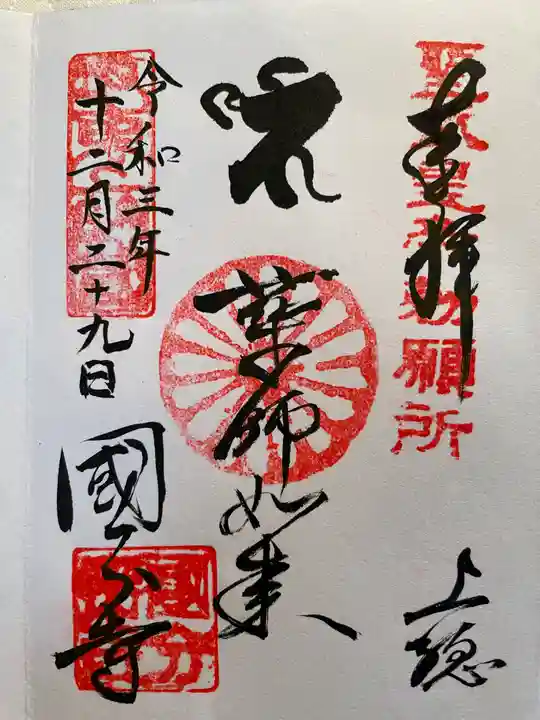 奉拝
上総
聖武皇帝勅願所
薬師如来
令和三年
十二月二十九日
國分寺